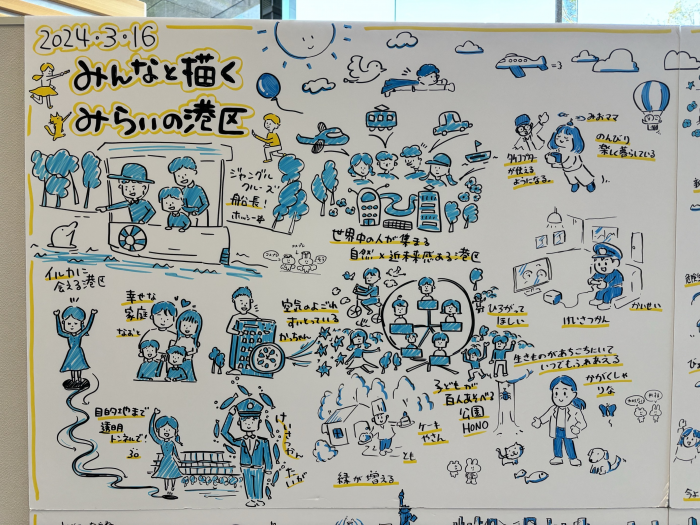 2024・3・16
みんなと描く
みらいの港区
ジャングル
クルーズ
船長!
イルカに
会える港区
世界中の人が集まる
自然×近未来感ある港区
みおママ
のんびり
楽しく暮らしている
が使える
ようになる。
けいさつかん
かいせい
幸せな
家庭
なおと
空気のよごれ
すいとっている
かっちゃん
ひろがって
ほしい
生きものがあちこちにいて
いつでもふれあえる
かがくしゃ
りな
子どもが
百人あそべる
公園
HONO
ケーキ
やさん
とも
緑が増える
目的地まで
透明
トンネルで!
けいさつかん
たいが